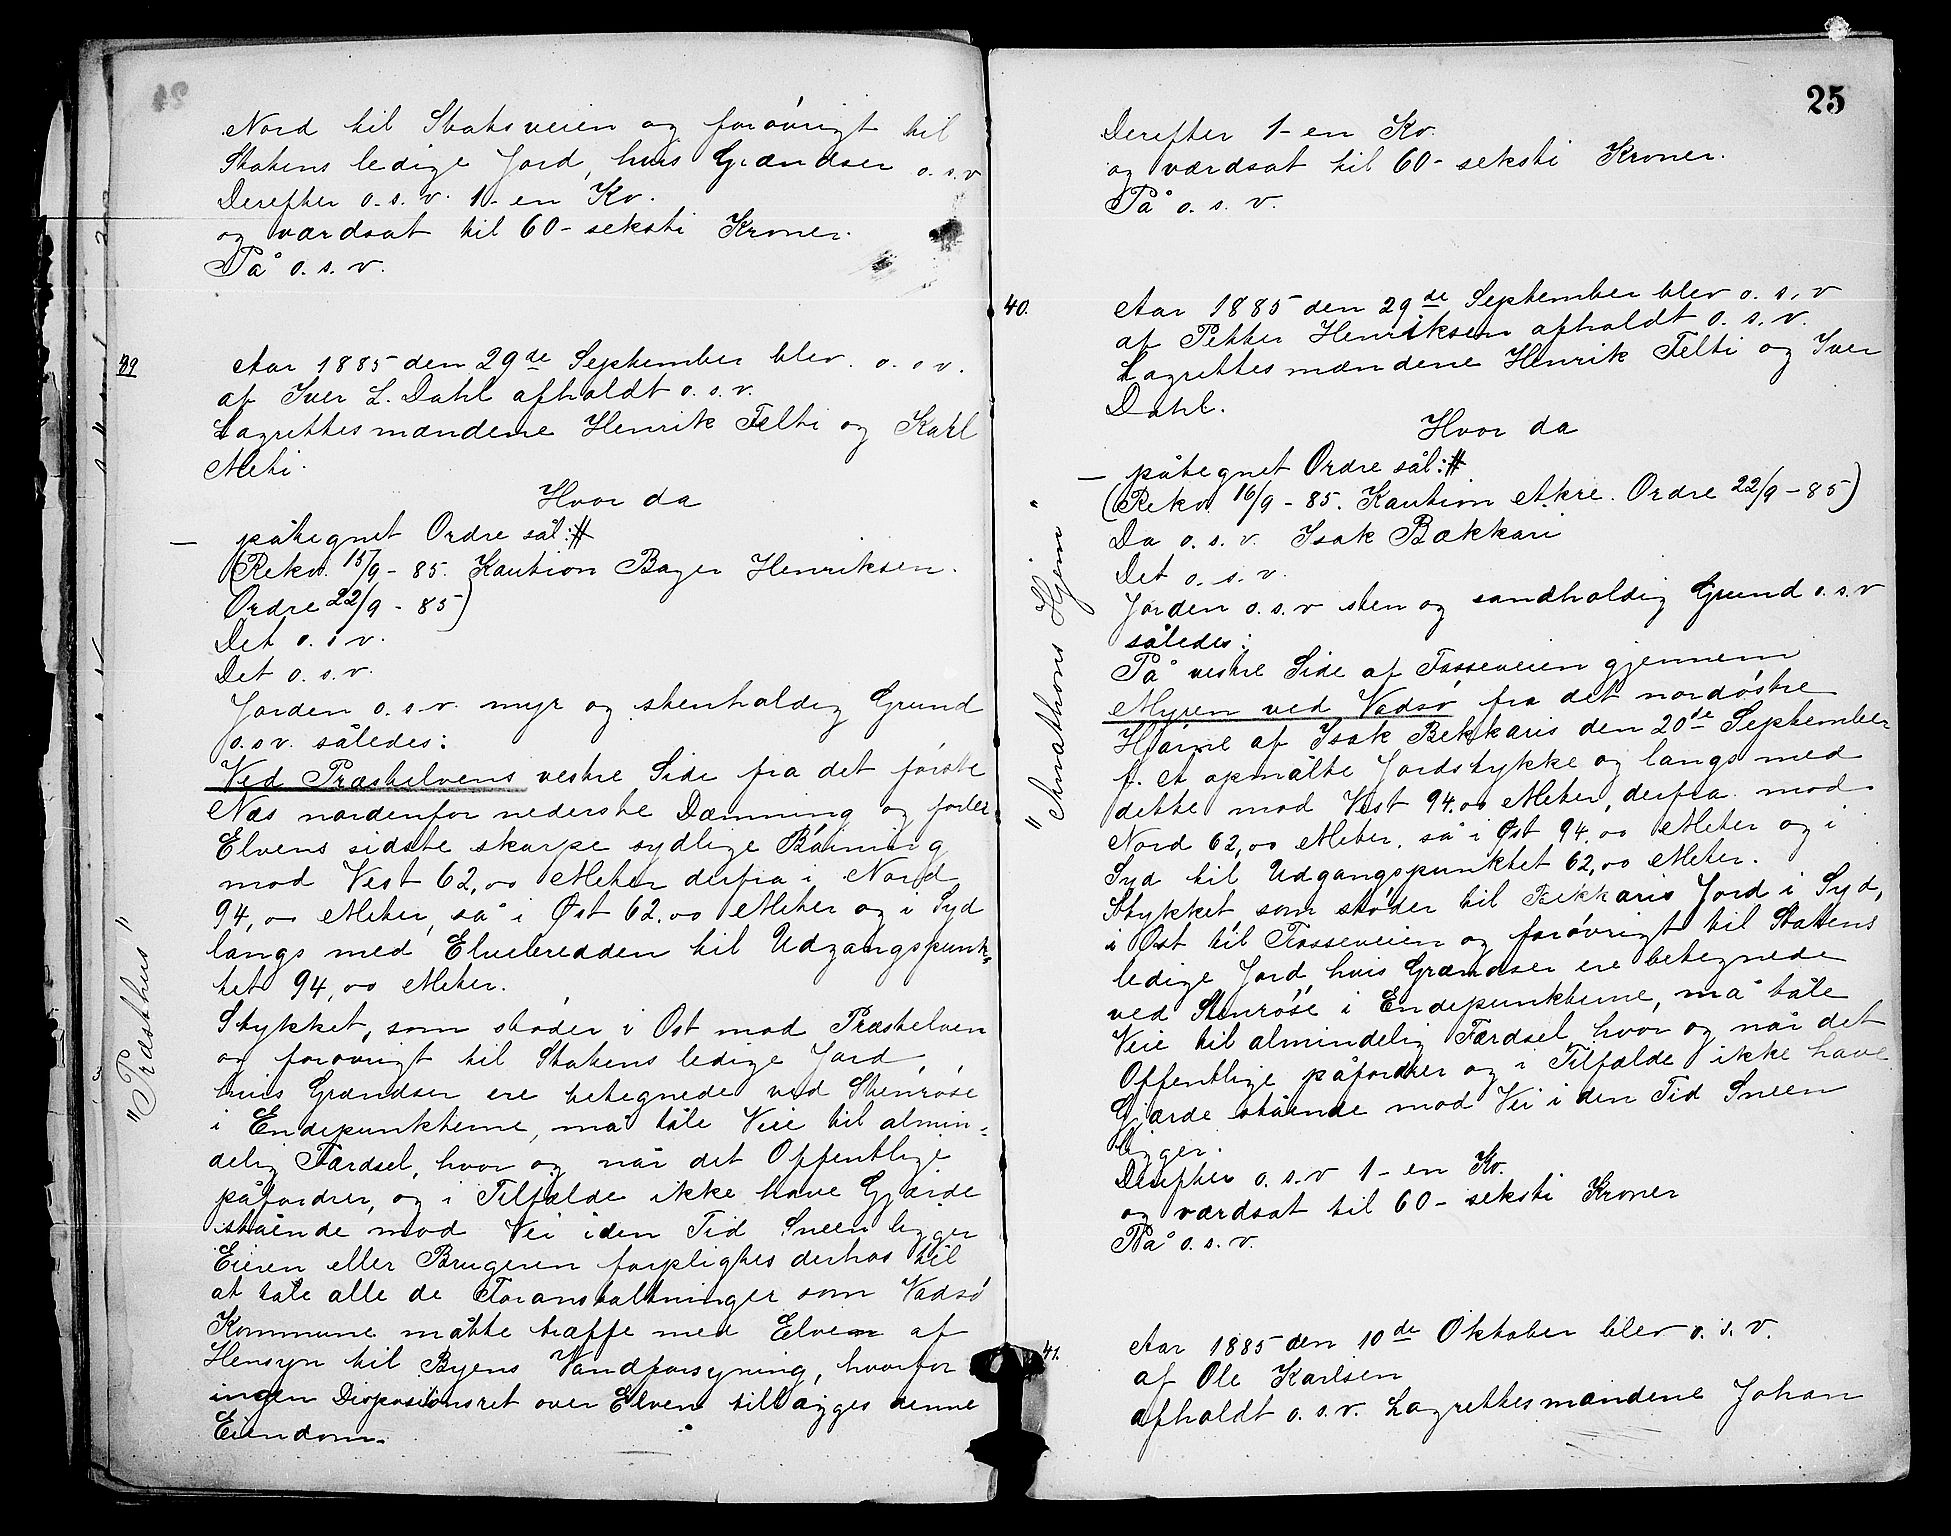 Nord til Statsveien og forøvrigt til
Statens ledige Jord, hvis Grændser o. s. v
Derefter o. s. v. 1 - en Kv.
og værdsat til 60 - seksti Kroner.
På o. s. v.
39
Aar 1885 den 29de September blev. o. s v.
af Iver L. Dahl afholdt o. s. v.
Lagrettesmændene Henrik Felti og Karl
Meti.
Hvor da
— påtegnet Ordre sål:#
(Rekv. 15/9 - 85. Kaution Bager Henriksen.
Ordre 22/9 - 85)
Det o. s v.
Det o. s. v.
Jorden o. s. v. myr og stenholdig Grund
o. s v. således:
"Præsthus"
Ved Præstelvens vestre Side fra det første
Næs nordenfor nederste Dæmning og
Elvens sidste skarpe sydlige Bøining
mod Vest 62,00 Meter derfra i Nord
94,00 Meter, så i Øst 62.00 Meter og i Syd
langs med Elvebredden til Udgangspunk-
tet 94,00 Meter.
Stykket, som støder i Øst mod Præstelven
og forøvrigt til Statens ledige Jord,
hvis Grændser ere betegnede ved Stenrøse
i Endepunkterne, må tåle Veie til almin-
delig Færdsel, hvor og når det Offentlige
påfordrer, og i Tilfælde ikke have Gjærde
stående mod Vei i den Tid Sneen ligger
Eieren eller Brugeren forpligtes derhos til
at tåle alle de Foranstaltninger som Vadsø
Kommune måtte træffe med Elven af
Hensyn til Byens Vandforsyning, hvorfor
ingen Dispositionsret over Elven tillægges denne
Eiendom.
25
Derefter 1 - en Kv.
og værdsat til 60 - seksti Kroner.
På o. s. v.
40.
Aar 1885 den 29de September blev o. s. v
af Petter Henriksen afholdt o. s. v.
Lagrettesmændene Henrik Felti og Iver
Dahl.
Hvor da
— påtegnet Ordre sål:#
(Rekv. 16/9 - 85. Kaution Ordre 22/9 - 85)
Da o. s. v. Isak Bækkari
Det o. s. v.
Jorden o. s. v sten og sandholdig Grund o. s. v
således:
Hjem"
På vestre Side af Fosseveien gjennem
Myren ved Vadsø fra det nordøstre
Hjørne af Isak Bekkaris den 20de September
f. A opmålte Jordstykke og langs med
dette mod Vest 94.00 Meter, derfra mod
Nord 62,00 Meter, så i Øst 94,00 Meter og i
Syd til Udgangspunktet 62,00 Meter.
Stykket, som støder til Bekkaris Jord i Syd,
i Øst til Fosseveien og forøvrigt til Statens
ledige Jord, hvis Grændser ere betegnede
ved Stenrøse i Endepunkterne, må tåle
Veie til almindelig Færdsel, hvor og når det
Offentlige påfordrer og i Tilfælde ikke have
Gjærde stående mod Vei i den Tid Sneen
ligger.
Derefter o. s. v 1 - en Kv.
og værdsat til 60 - seksti Kroner
På o. s. v.
41.
Aar 1885 den 10de Oktober blev o. s. v.
af Ole Karlsen
afholdt o. s. v. Lagrettesmændene Johan